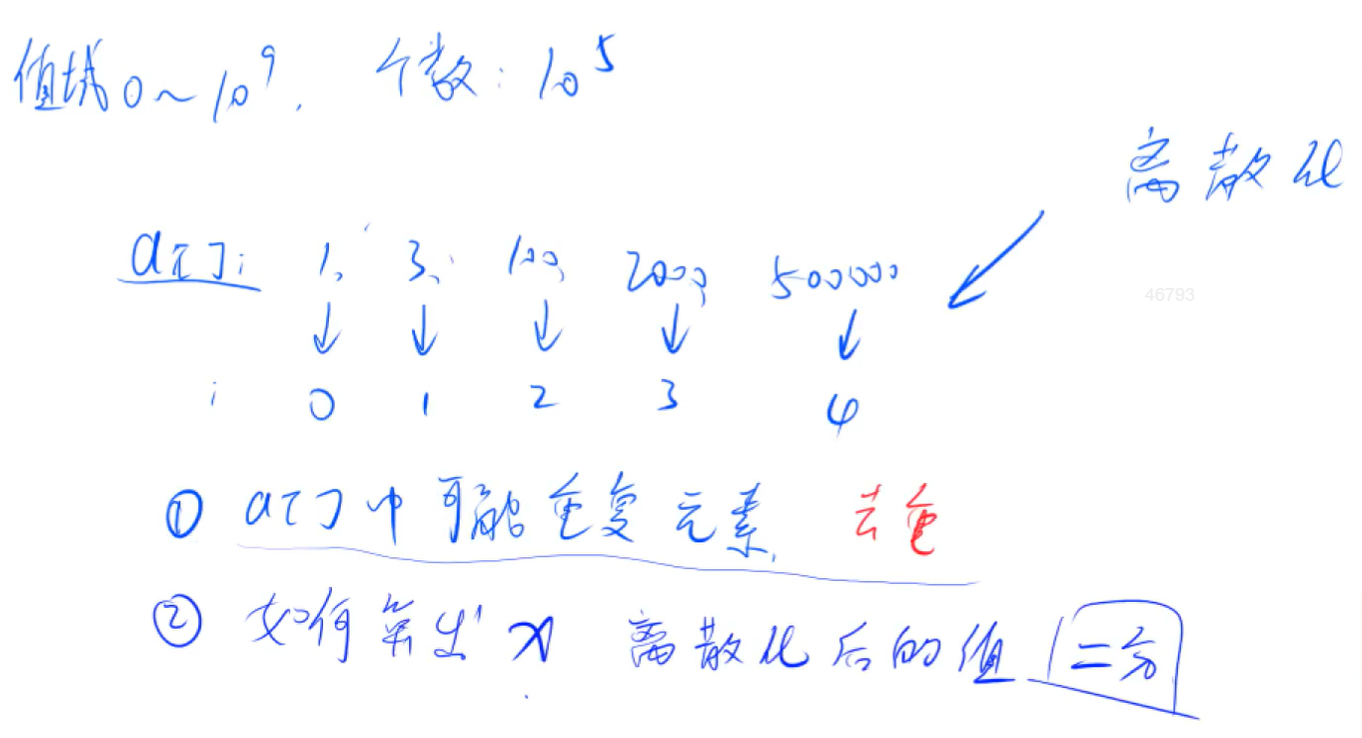 值域 0~10^9, 个数: 10^5
离散化
a[]: 1, 3, 100, 2000, 500000
46793
↓ ↓ ↓ ↓ ↓
i 0 1 2 3 4
① a[]中可能重复元素, 去重
② 如何算出 x 离散化后的值 二分